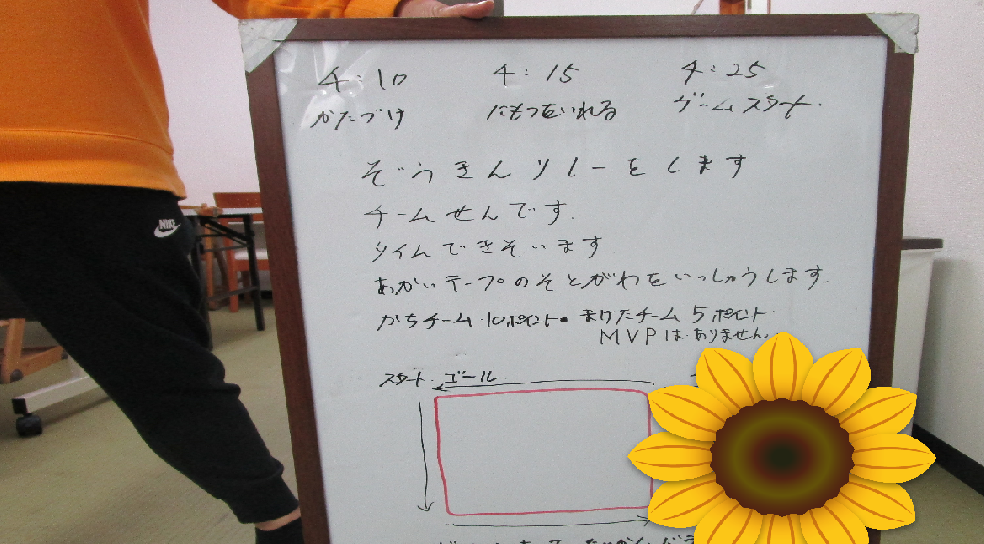 4:10 4:15 4:25
かたづけ にもつをいれる ゲームスタート.
ぞうきんリレーをします
チームせんです.
タイムできそいます
あかいテープのそとがわをいっしゅうします.
かちチーム 10ポイント. まけたチーム 5ポイント
MVPは ありません.
スタート ゴール